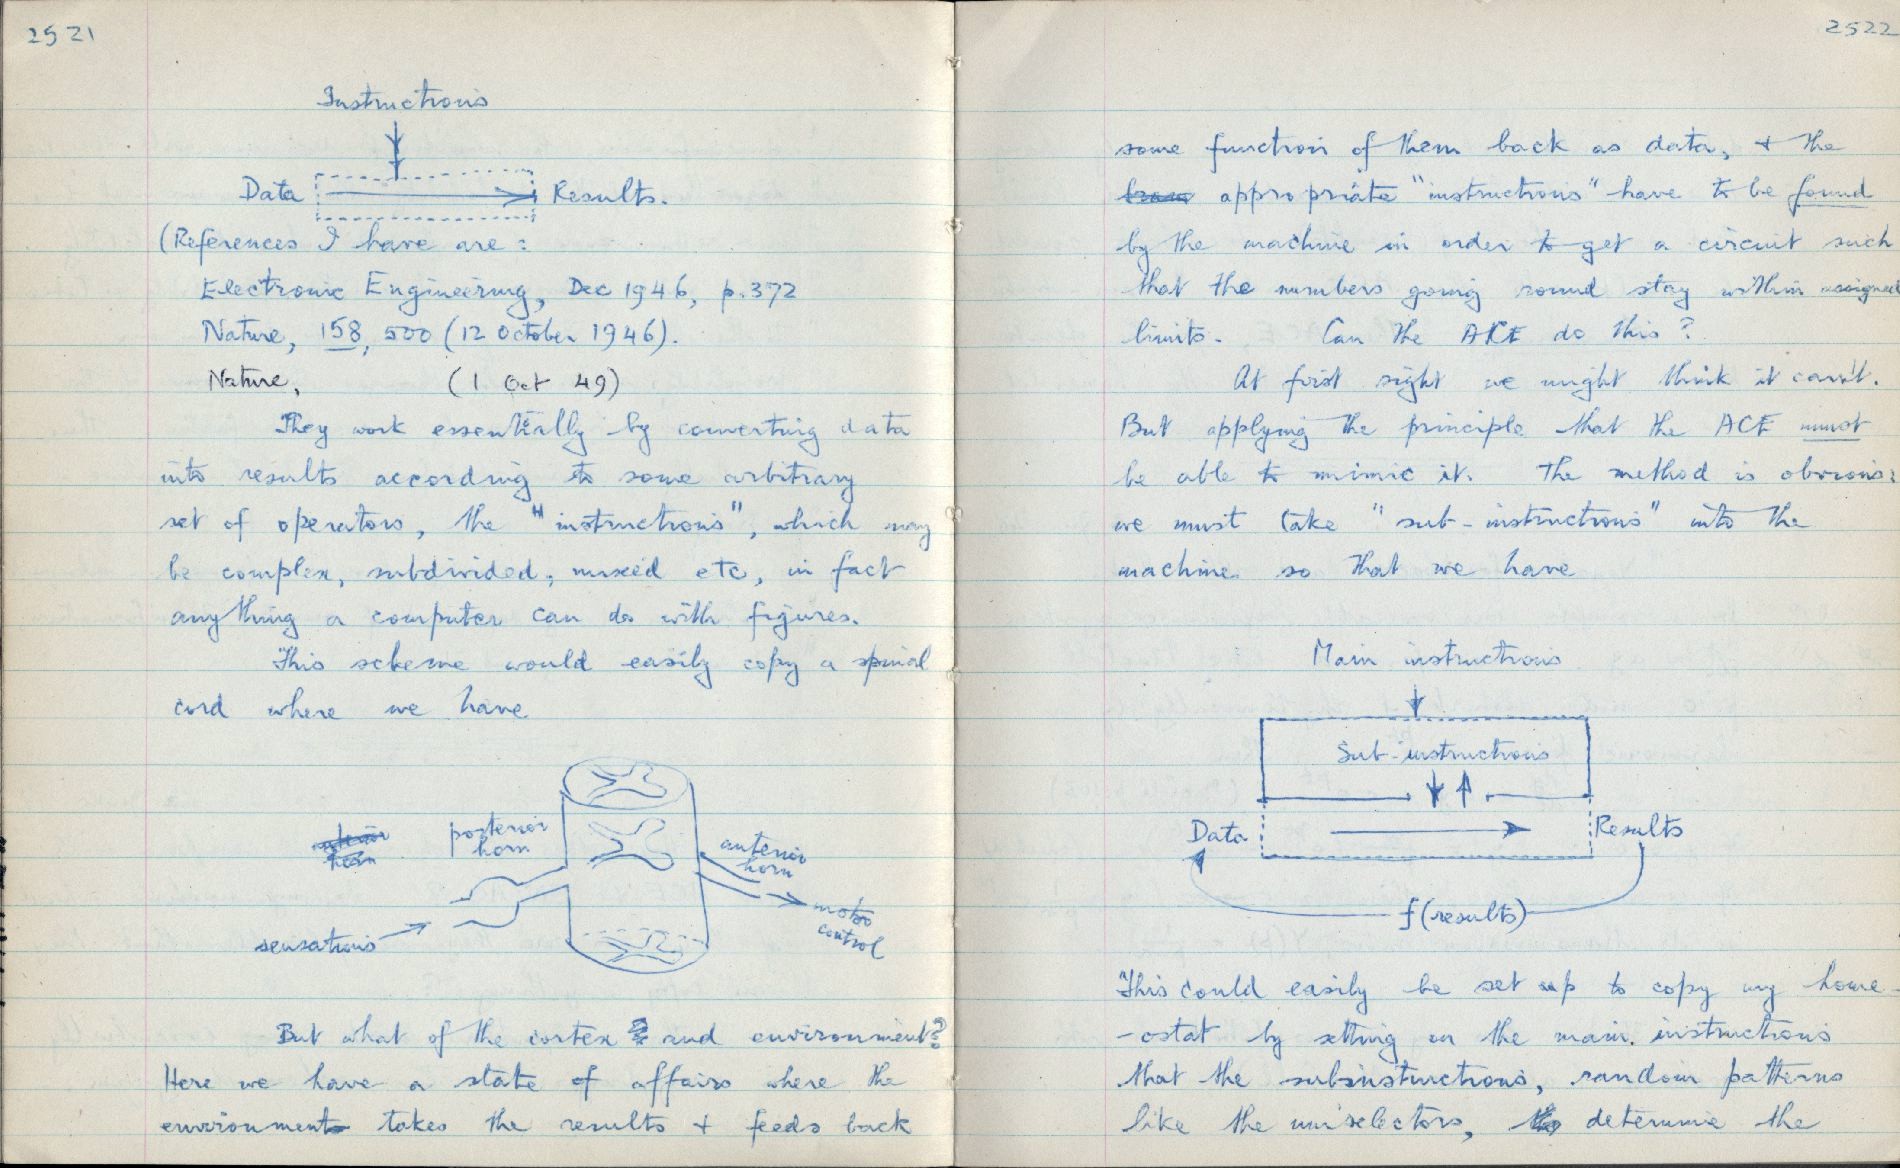 2521
Instructions
Data Results.
(References I have are:
Electronic Engineering, Dec 1946, p.372
Nature, 158, 500 (12 October 1946).
Nature, (1 Oct 49)
They work essentially by converting data
into results according to some arbitrary
set of operators, the "instructions", which may
be complex, subdivided, mixed etc, in fact
anything a computer can do with figures.
This scheme would easily copy a spinal
cord where we have
horn
posterior
horn
anterior
horn
sensations
motor
control
But what of the cortex and environment?
Here we have a state of affairs where the
environment takes the results + feeds back
2522
some function of them back as data, + the
appropriate "instructions" have to be found
by the machine in order to get a circuit such
that the numbers going round stay within assigned
limits. Can the ACE do this?
At first sight we might think it can't.
But applying the principle that the ACE must
be able to mimic it. The method is obvious:
we must take "sub-instructions" into the
machine so that we have
Main instructions
Sub-instructions
Data Results
f(results)
This could easily be set up to copy my home-
-ostat by setting in the main instructions
that the subinstructions, random patterns
like the uniselectors, determine the